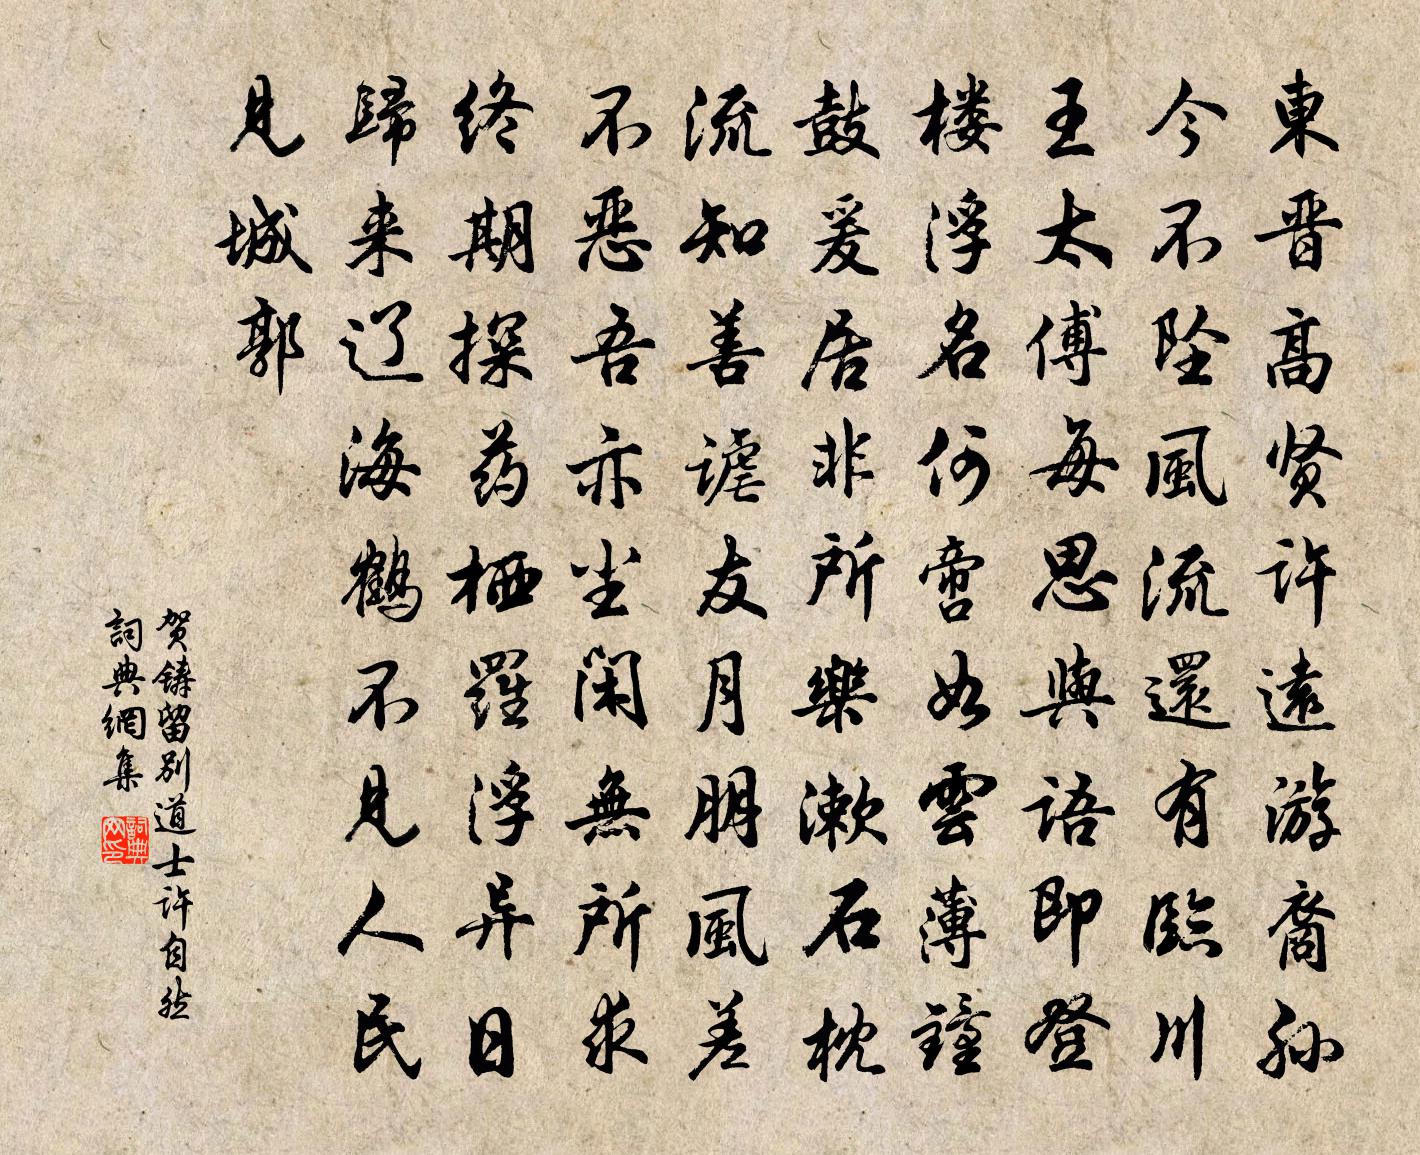 東晋高贤許遠游裔孙
今不坠風流還有臨川
王太傅每思與語即登
楼浮名何啻如雲薄鐘
鼓爰居非所樂漱石枕
流知善谑友月朋風差
不恶吾亦坐闲無所求
终期探药栖羅浮异日
歸来辽海鶴不見人民
見城郭
贺鑄留别道士許自然
詞典網集
詞典网印